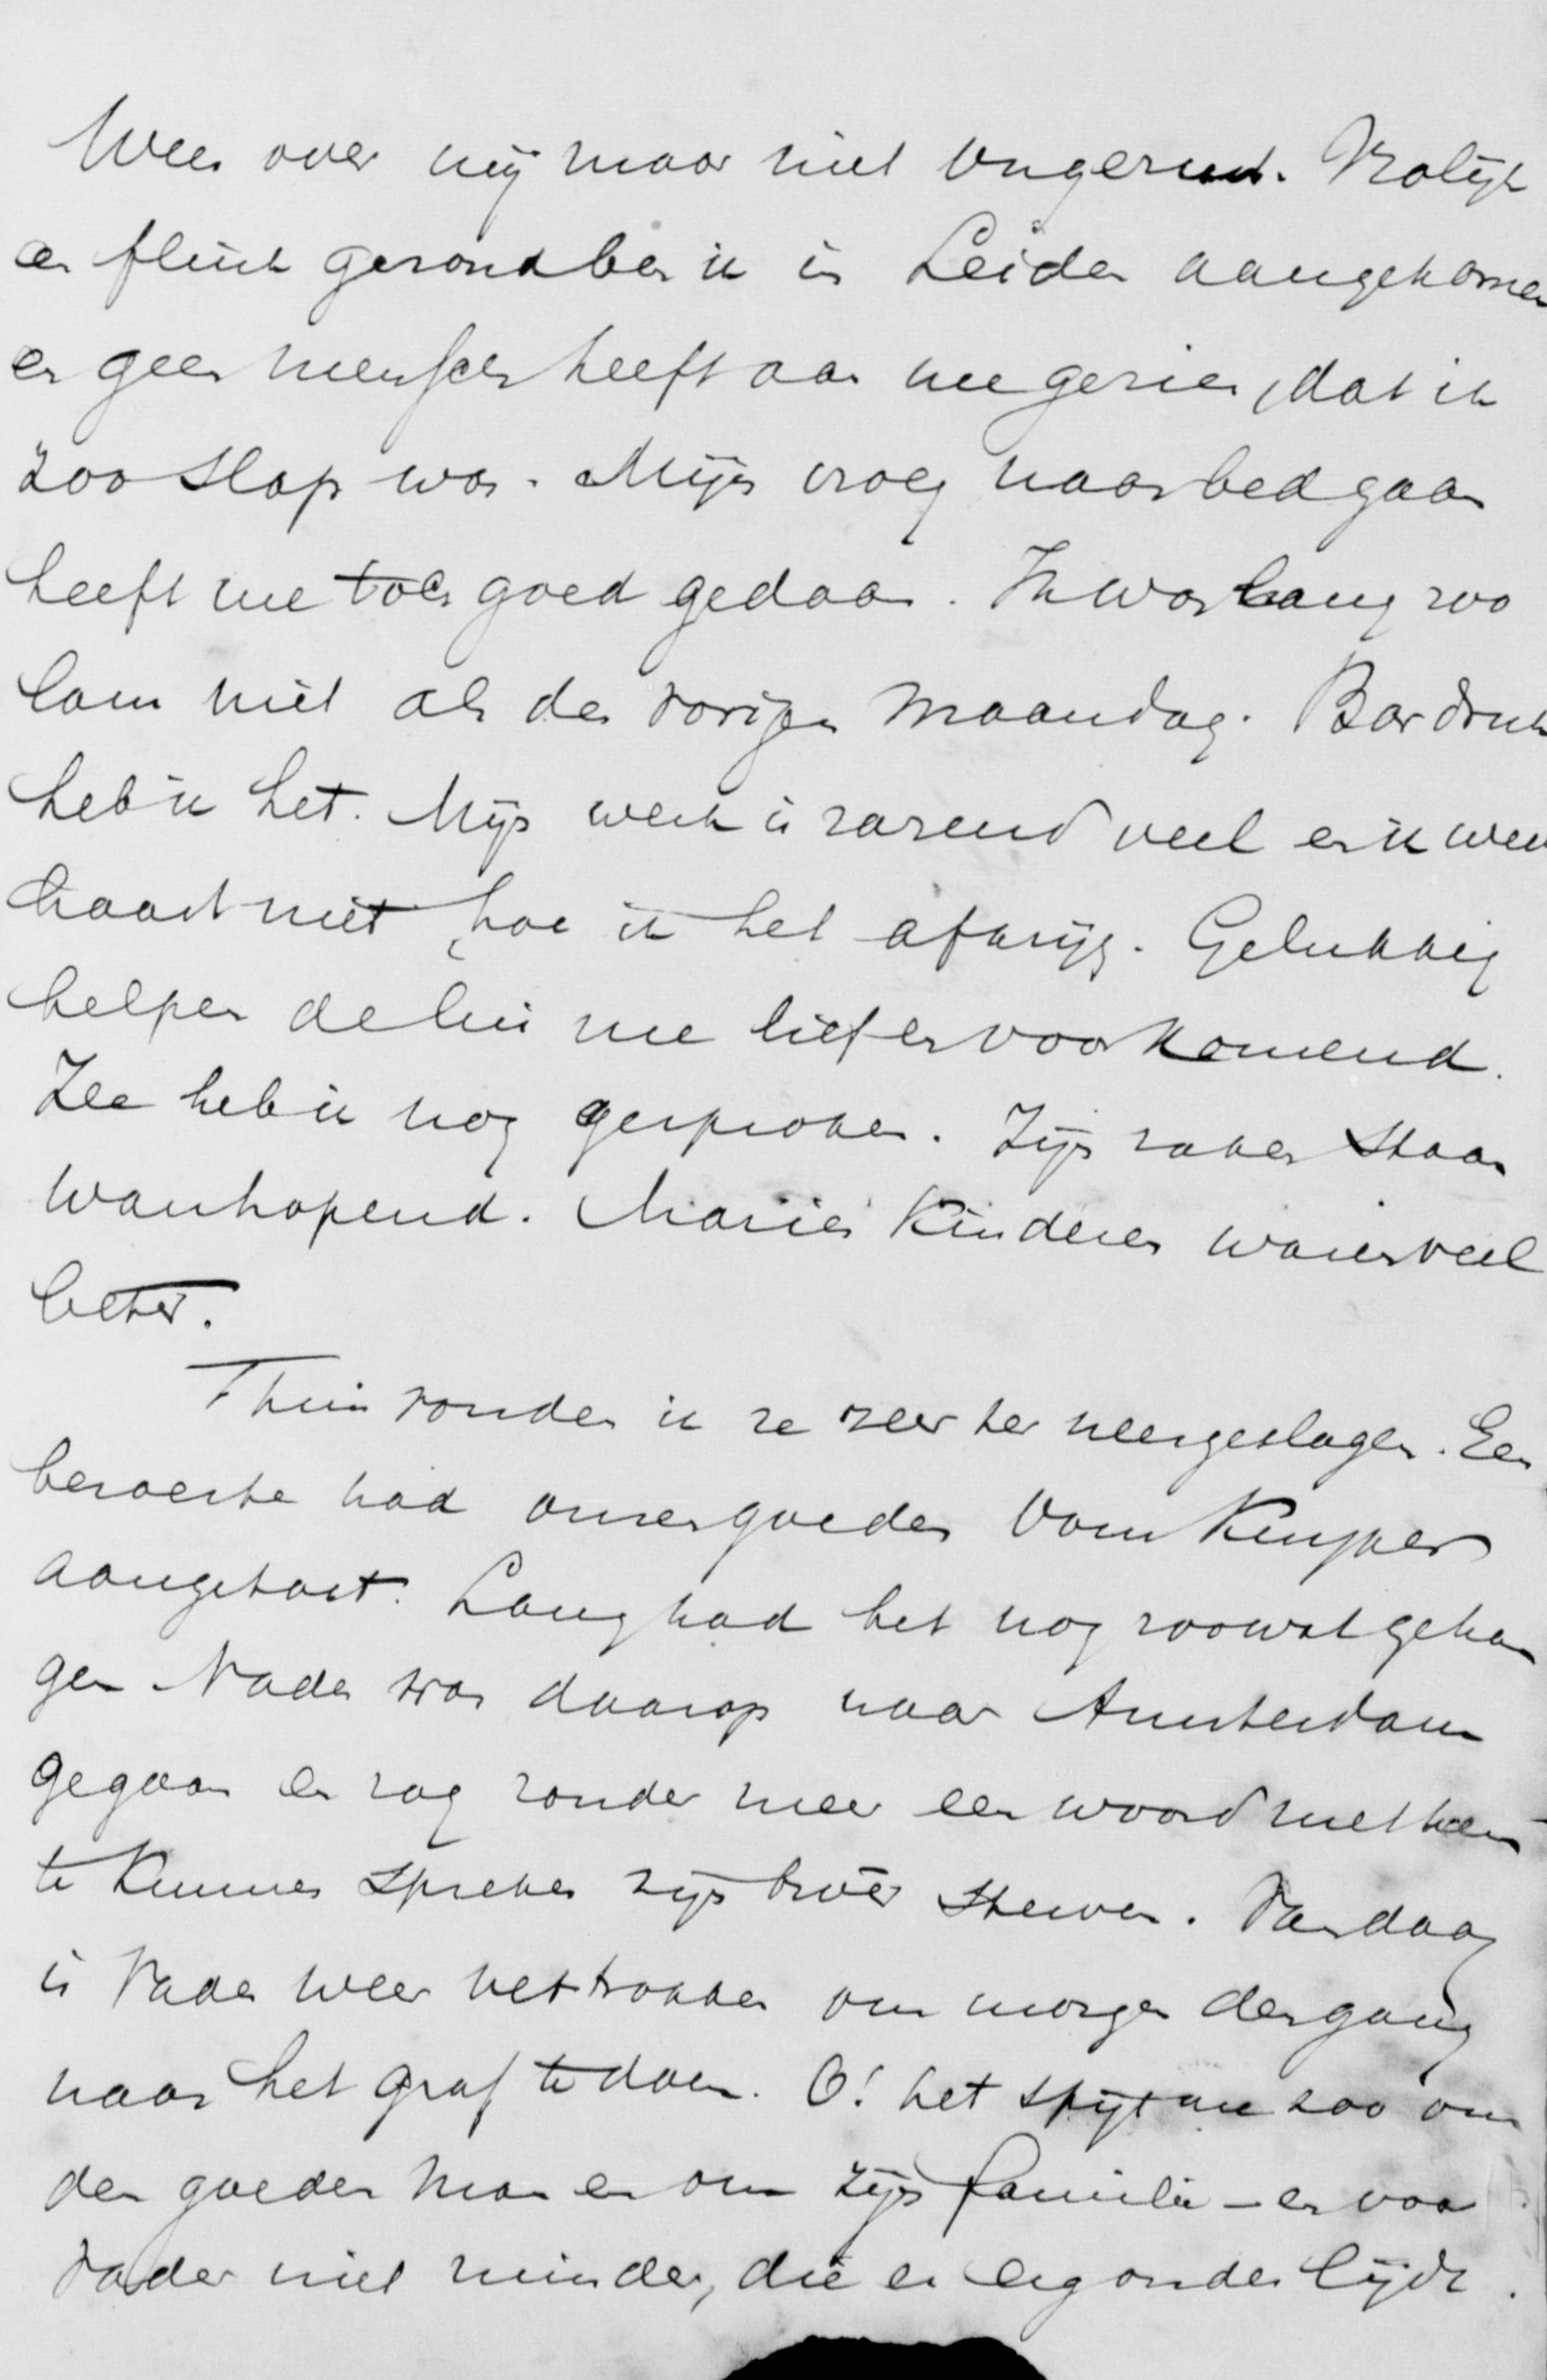 Wees over mij maar niet ongerust. Vrolijk
en flink gezond ben ik in Leiden aangekomen
en geen mensch heeft aan me gezien, dat ik
zoo slap was. Mijn vroeg naar bed gaan
heeft me toen goed gedaan. Ik was lang zoo
lam niet als den vorigen Maandag. Bar druk
heb ik het. Mijn werk is razend veel en ik weet
haast niet, hoe ik het afkrijg. Gelukkig
helpen de lui me lief en voorkomend.
Zee heb ik nog gesproken. Zijn zaken staan
wanhopend. Marie's kinderen waren veel
beter.
Thuis vonden ik ze zeer ter neergeslagen. Een
beroerte had onzen goeden Oom Kuyper
aangetast. Lang had het nog zoowat gehan
gen Vader was daarop naar Amsterdam
gegaan en zag zonder meer een woord met hem
te kunnen spreken zijn broêr sterven. Vandaag
is Vader weer vertrokken om morgen den gang
naar het graf te doen. O! het spijt me zoo om
den goeden man en om zijn familie – en voor
Vader niet minder, die er erg onder lijdt.